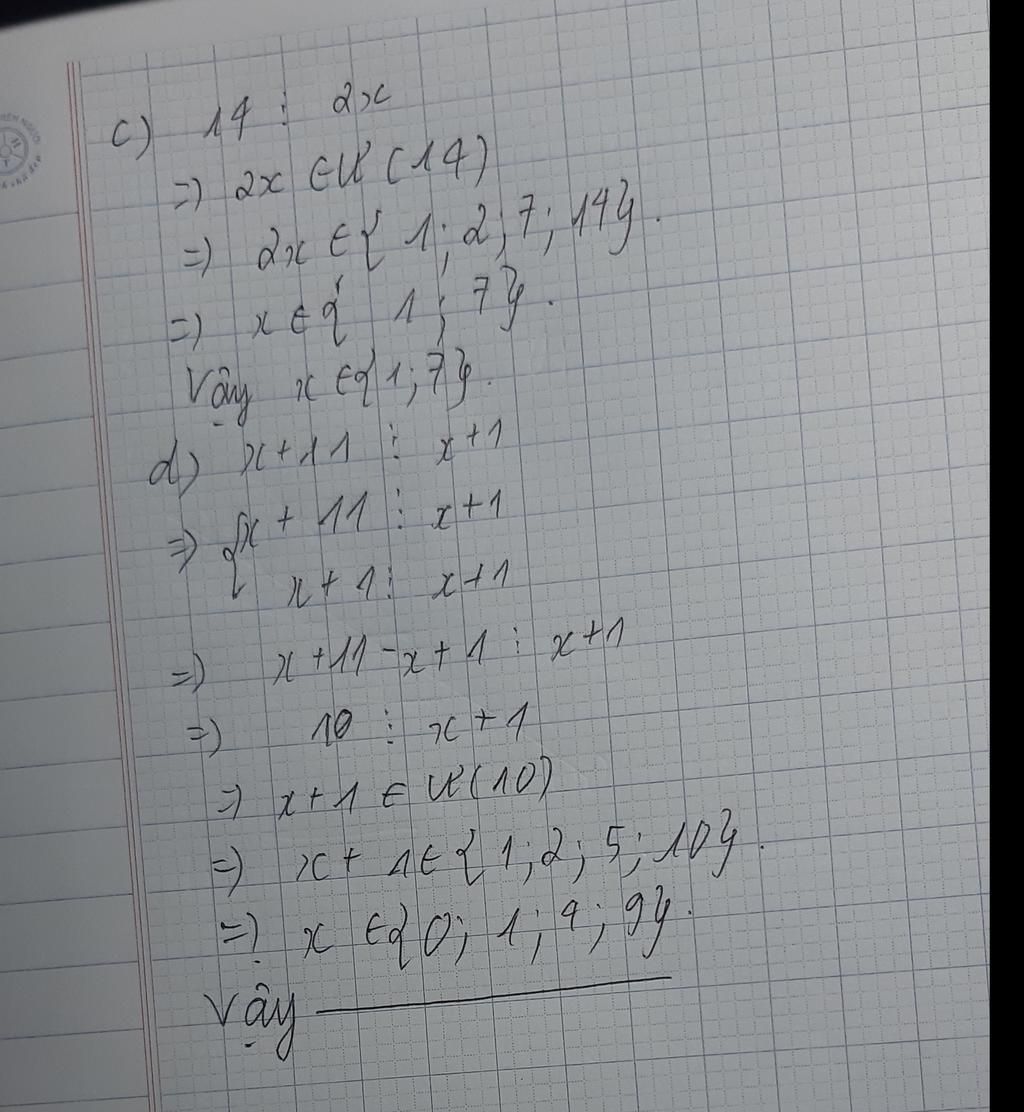 c) 14 ⋮ 2x
=) 2x ∈ Ư (14)
=) 2x ∈ { 1; 2; 7; 14}.
=) x ∈ { 1; 7}.
Vậy x ∈ {1; 7}.
d) x + 11 ⋮ x + 1
=) { x + 11 ⋮ x + 1
x + 1 ⋮ x + 1
=) x + 11 - x + 1 ⋮ x + 1
=) 10 ⋮ x + 1
=) x + 1 ∈ Ư (10)
=) x + 1 ∈ { 1; 2; 5; 10}.
=) x ∈ { 0; 1; 4; 9}.
Vậy